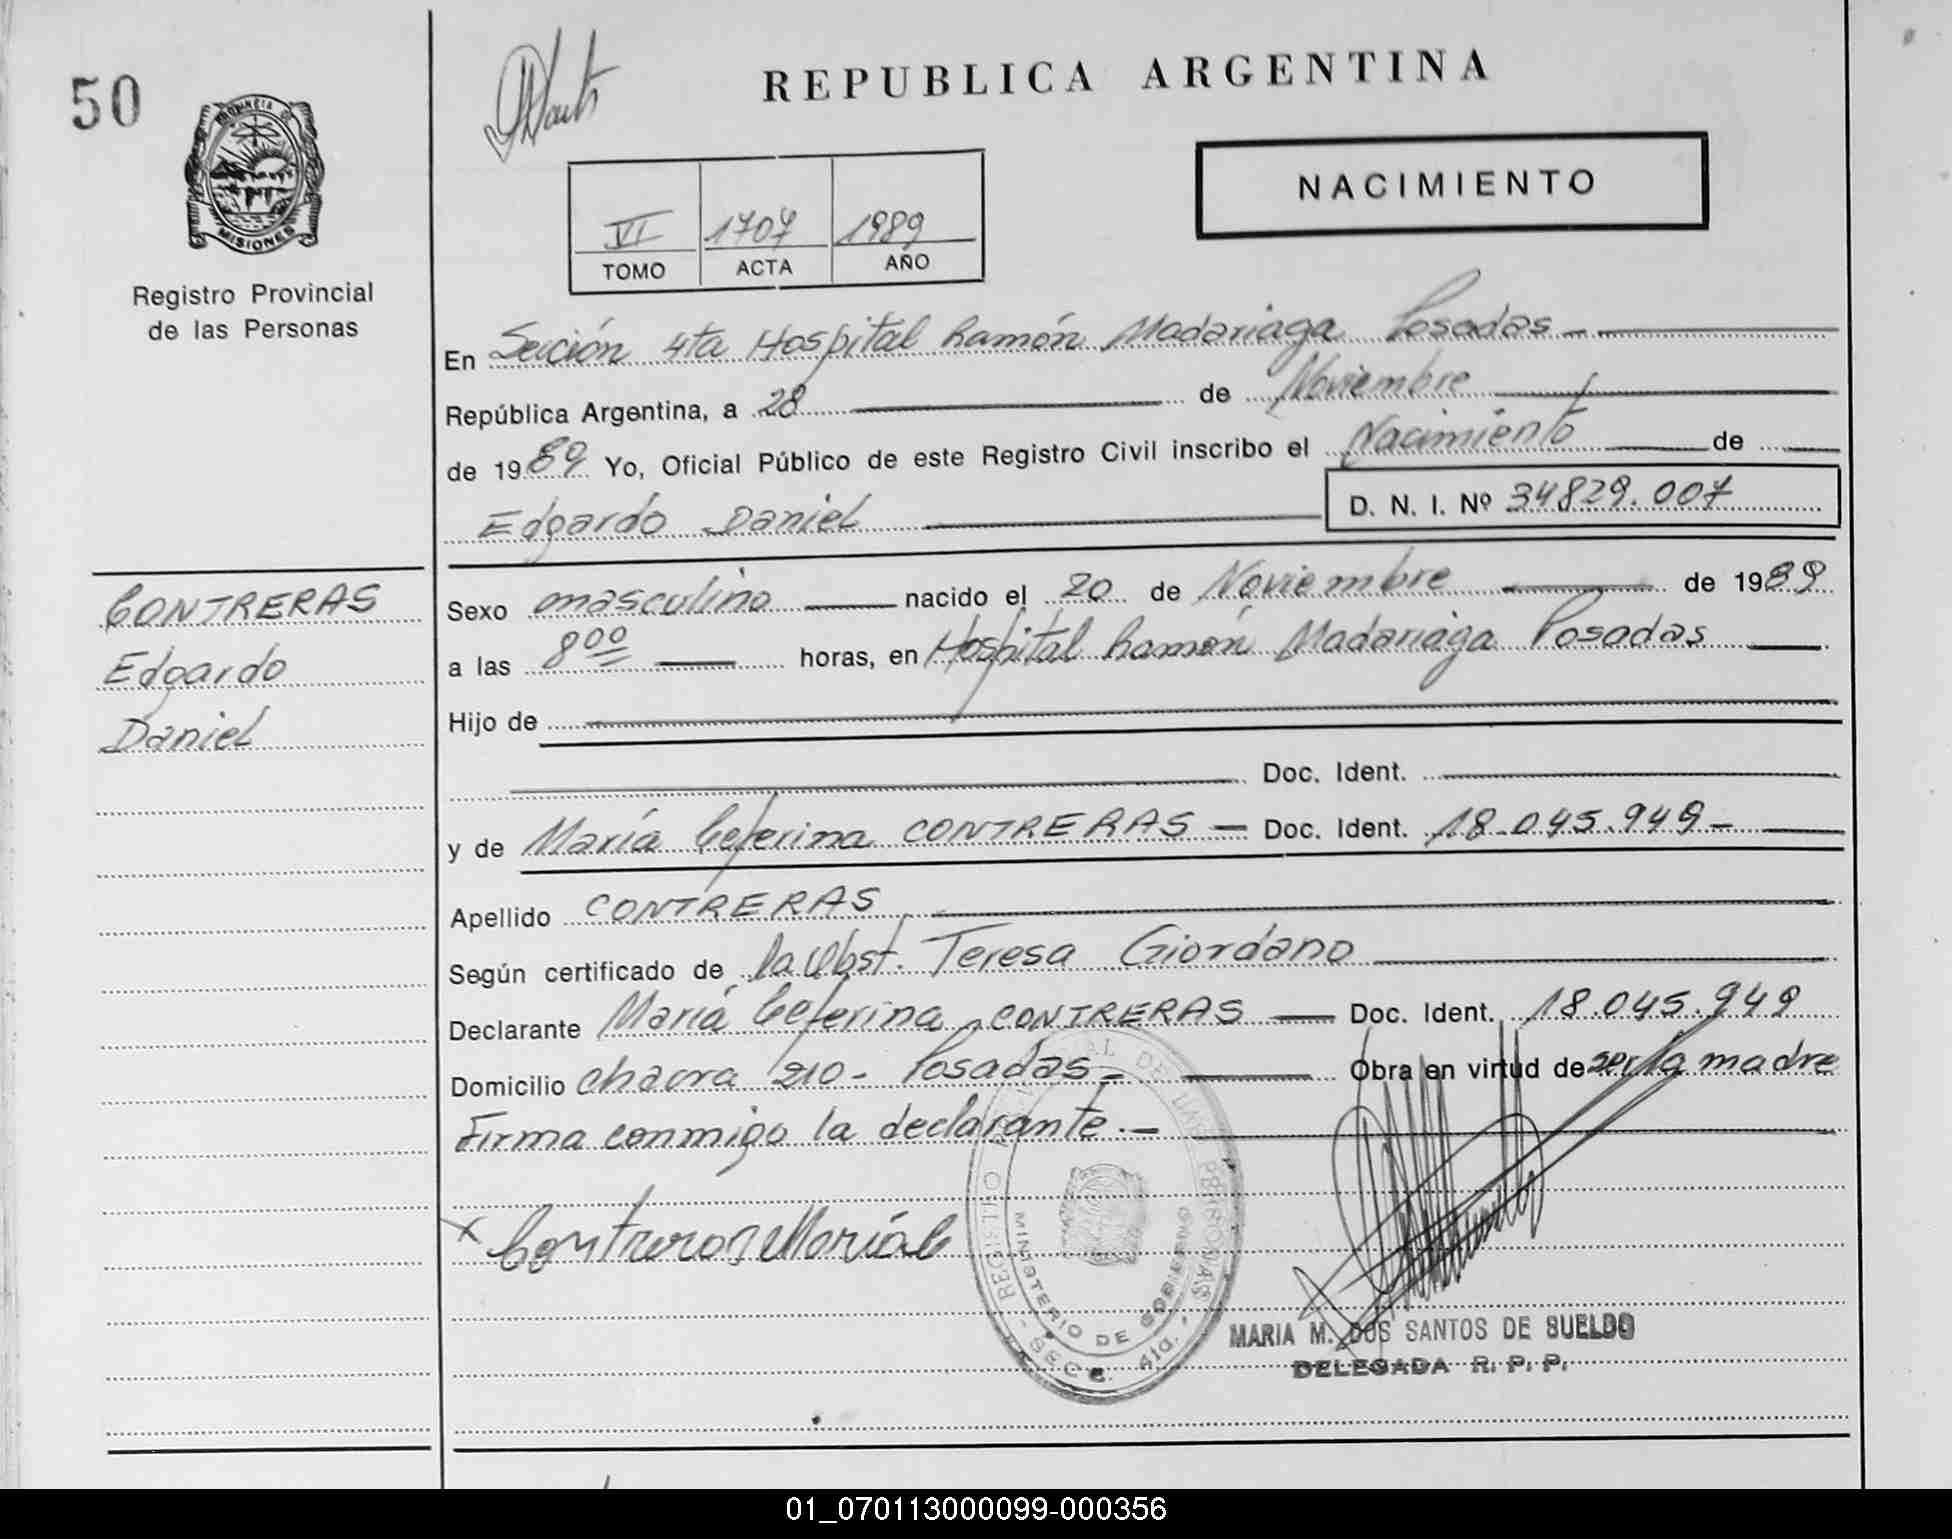 50
PROVINCIA DE
MISIONES
Registro Provincial
de las Personas
REPUBLICA ARGENTINA
NACIMIENTO
VI 1707 1989
TOMO ACTA AÑO
En Sección 4ta Hospital Ramón Madariaga Posadas
República Argentina, a 28 de Noviembre
de 1989 Yo, Oficial Público de este Registro Civil inscribo el Nacimiento de
Edgardo Daniel D. N. I. Nº 34829.007
CONTRERAS
Edgardo
Daniel
Sexo masculino nacido el 20 de Noviembre de 1989
a las 8 00 horas, en Hospital Ramón Madariaga Posadas
Hijo de
Doc. Ident.
y de María Ceferina CONTRERAS Doc. Ident. 18.045.949
Apellido CONTRERAS
Según certificado de la Obst. Teresa Giordano
Declarante María Ceferina CONTRERAS Doc. Ident. 18.045.949
Domicilio chacra 210 - Posadas - Obra en virtud de ser la madre
Firma conmigo la declarante.-
x Contreras María C
REGISTRO PROVINCIAL DE LAS PERSONAS
MINISTERIO DE GOBIERNO
- SECC. 4ta. -
MARIA M. DOS SANTOS DE SUELDO
DELEGADA R. P. P.
01_070113000099-000356